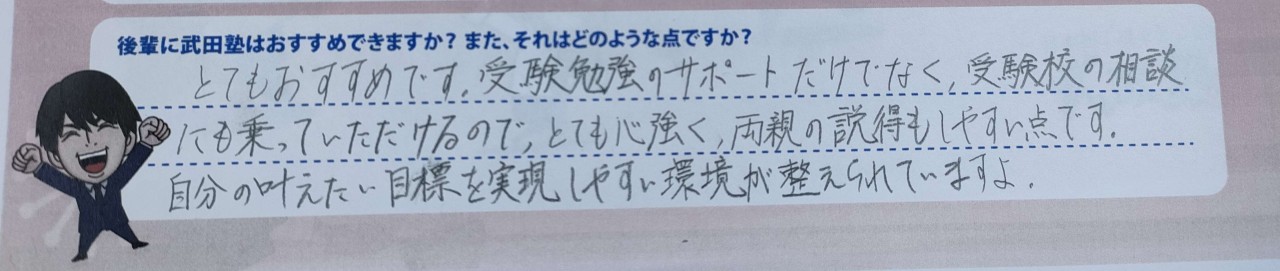 後輩に武田塾はおすすめできますか？また、それはどのような点ですか？
とてもおすすめです。受験勉強のサポートだけでなく、受験校の相談
にも乗っていただけるので、とても心強く、両親の説得もしやすい点です。
自分の叶えたい目標を実現しやすい環境が整えられていますよ。